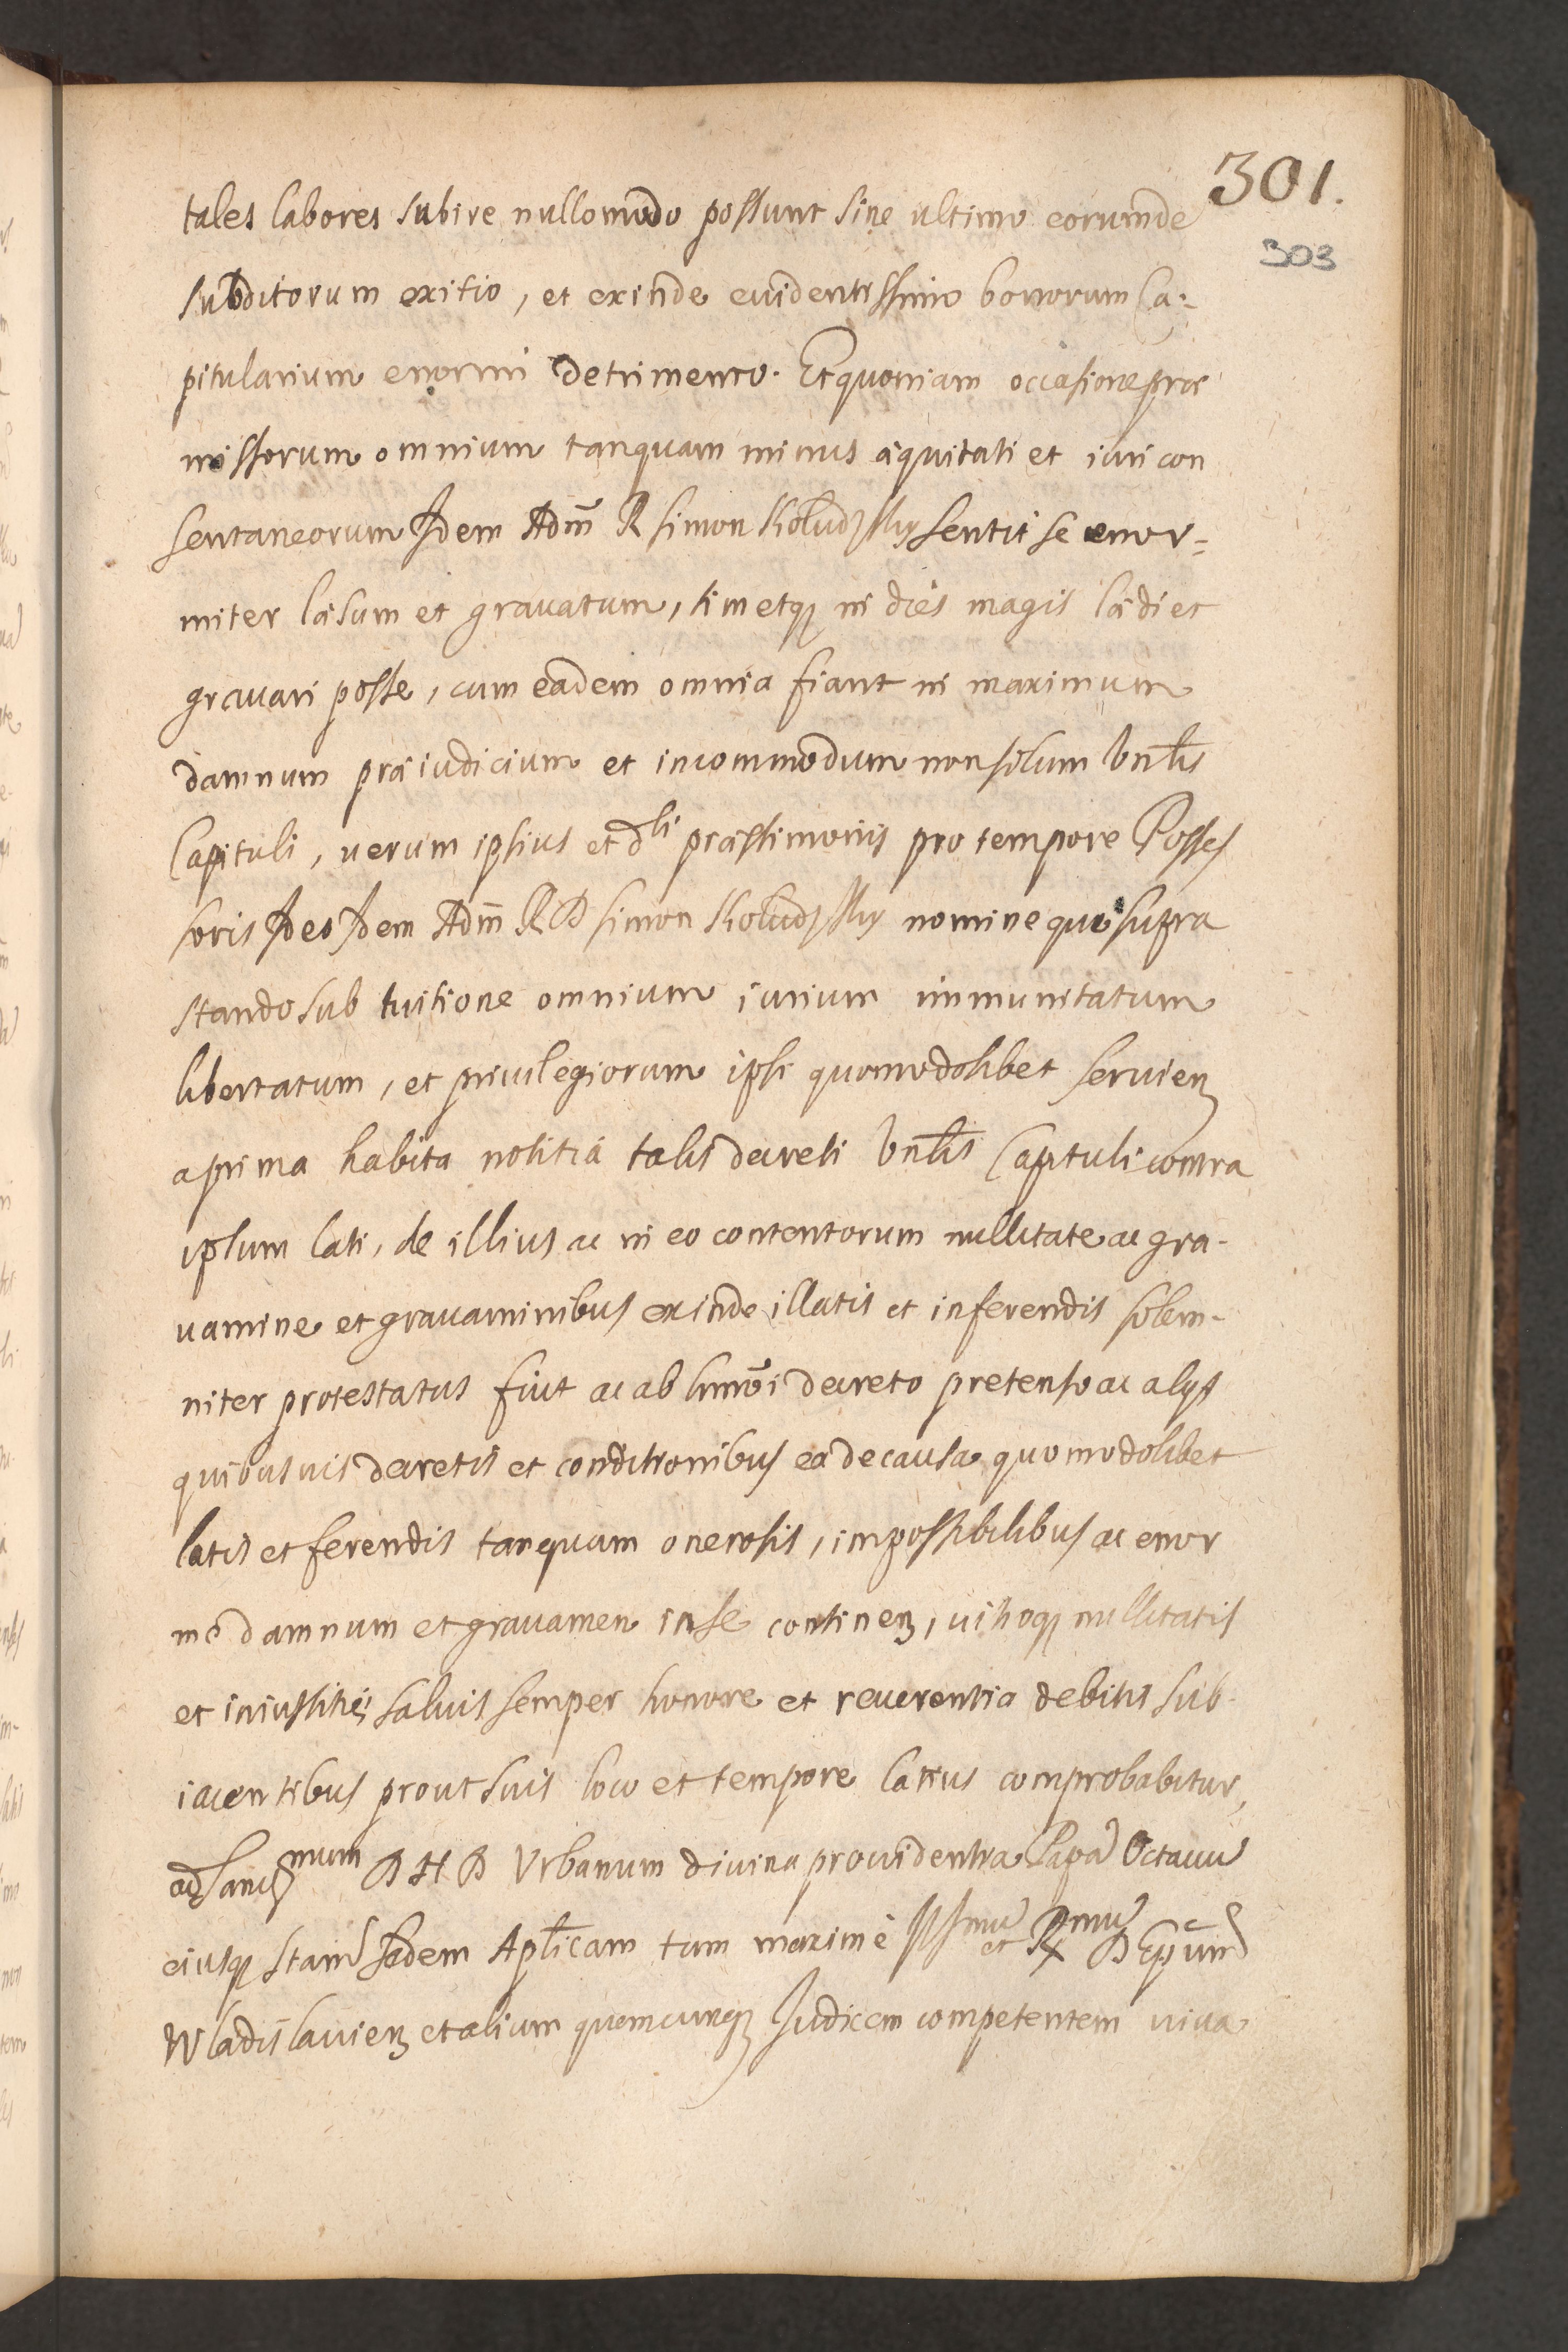 301.
303
tales labores subire nullomodo possunt sine ultimo eorumde
subditorum exitio, et exinde euidentissimo bonorum Ca-
pitularium enormi detrimento. Et quoniam occasione præ
missorum omnium tanquam minus æquitati et iuri con
sentaneorum Idem Adm̄ R Simon Kołudzsky sentit se enor=
miter læsum et grauatum, timetq in dies magis lædi et
grauari posse, cum eadem omnia fiant in maximum
damnum præiudicium et incommodum non solum Vnlis
Capituli, uerum ipsius et dli præstimonis pro tempore Posses
soris Ideo Idem Adm̄ R D Simon Kołudzsky nomine quo supra
stando sub tuitione omnium iurium immunitatum
libertatum, et priuilegiorum ipsi quomodolibet seruien
a prima habita notitia talis decreti Vnlis Capituli contra
ipsum lati, de illius ac in eo contentorum nullitate ac gra-
uamine et grauaminibus exinde illatis et inferendis solem-
niter protestatus fuit ac ab hmōi decreto pretenso ac alys
quibusuis decretis et conditionibus ea de causa quomodolibet
latis et ferendis tanquam onerosis, impossibilibus ac enor
me damnum et grauamen in se continen, uitioq nullitatis
et iniustitiæ saluis semper honore et reuerentia debitis sub-
iacentibus prout suis loco et tempore latius comprobabitur,
ad Sanctmum D N D Vrbanum diuina prouidentia Papa Octauu
eiusq Stam Sedem Aplicam tum maxime Illmu et Rmu D Epum
Wladislauien et alium quemcunq Judicem competentem uiua